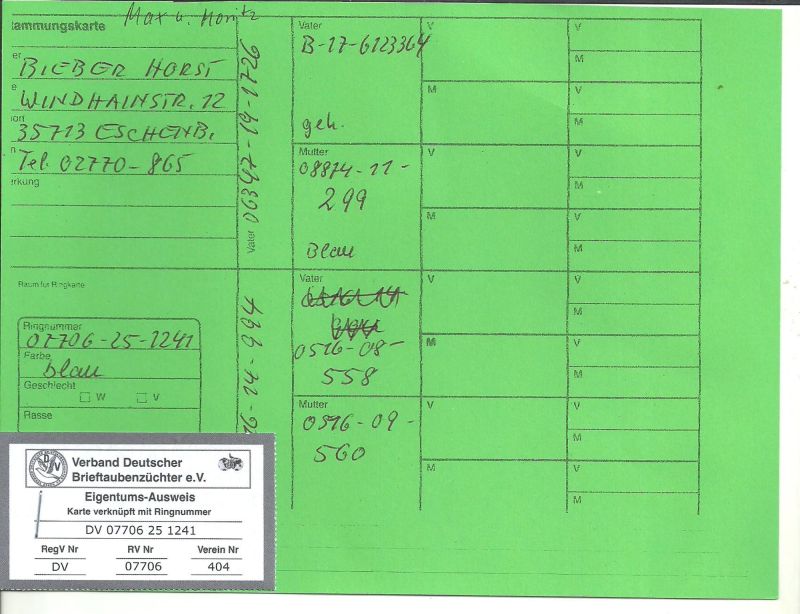 Max u. Moritz
ammungskarte
er
BIEBER HORST
e
WINDHAINSTR. 12
ort
35713 ESCHENB.
n
Tel. 02770-865
erkung
Raum für Ringkarte
Ringnummer
07706-25-1241
Farbe
blau
Geschlecht
W V
Rasse
Verband Deutscher
Brieftaubenzüchter e.V.
Eigentums-Ausweis
Karte verknüpft mit Ringnummer
DV 07706 25 1241
RegV Nr RV Nr Verein Nr
DV 07706 404
Vater 06347-19-1726
16-14-994
Vater
B-17-6123364
geh.
Mutter
08814-11-
299
Blau
Vater
0516-08-
558
Mutter
0516-09-
560
V
M
V
M
V
M
V
M
V
M
V
M
V
M
V
M
V
M
V
M
V
M
V
M